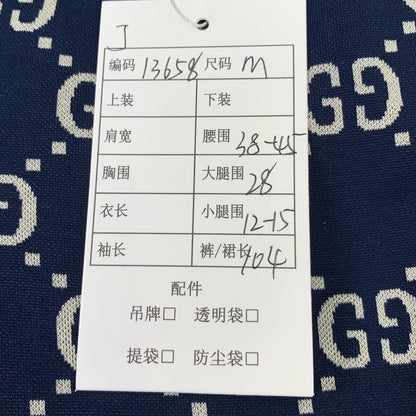 J
编码 13658 尺码 M
上装 下装
肩宽 腰围 38-45
胸围 大腿围 28
衣长 小腿围 12-15
袖长 裤/裙长 104
配件
吊牌□ 透明袋□
提袋□ 防尘袋□